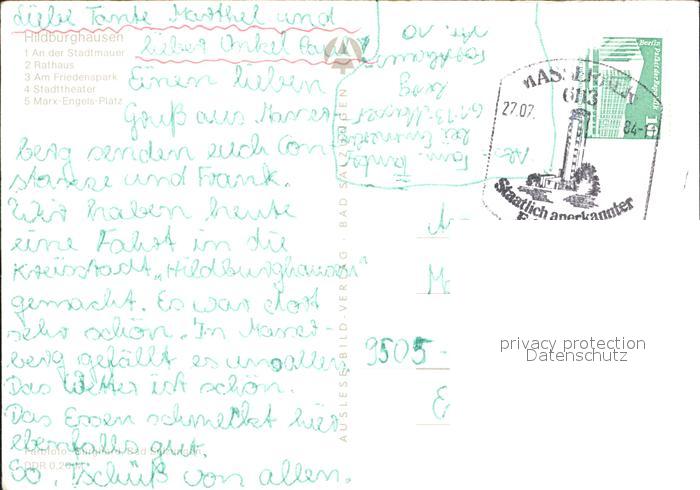 Liebe Tante Marthel und
lieber Onkel
Einen lieben
Gruß aus Masser-
berg senden euch Con-
stanze und Frank.
Wir haben heute
eine Fahrt in die
Kreisstadt „Hildburghausen“
gemacht. Es war dort
sehr schön. In Masser-
berg gefällt es uns allen.
Das Wetter ist schön.
Das Essen schmeckt hier
ebenfalls gut.
So, Tschüß von allen.
Hildburghausen
1 An der Stadtmauer
2 Rathaus
3 Am Friedenspark
4 Stadttheater
5 Marx-Engels-Platz
DDR 0,20
AUSLESE-BILD-VERLAG · BAD SALZUNGEN
Abs.: Fam.
6113
MASSERBERG
6113
27.07. 84-11
Staatlich anerkannter
Berlin Palast der Republik
10
DDR
9505 -
privacy protection
Datenschutz